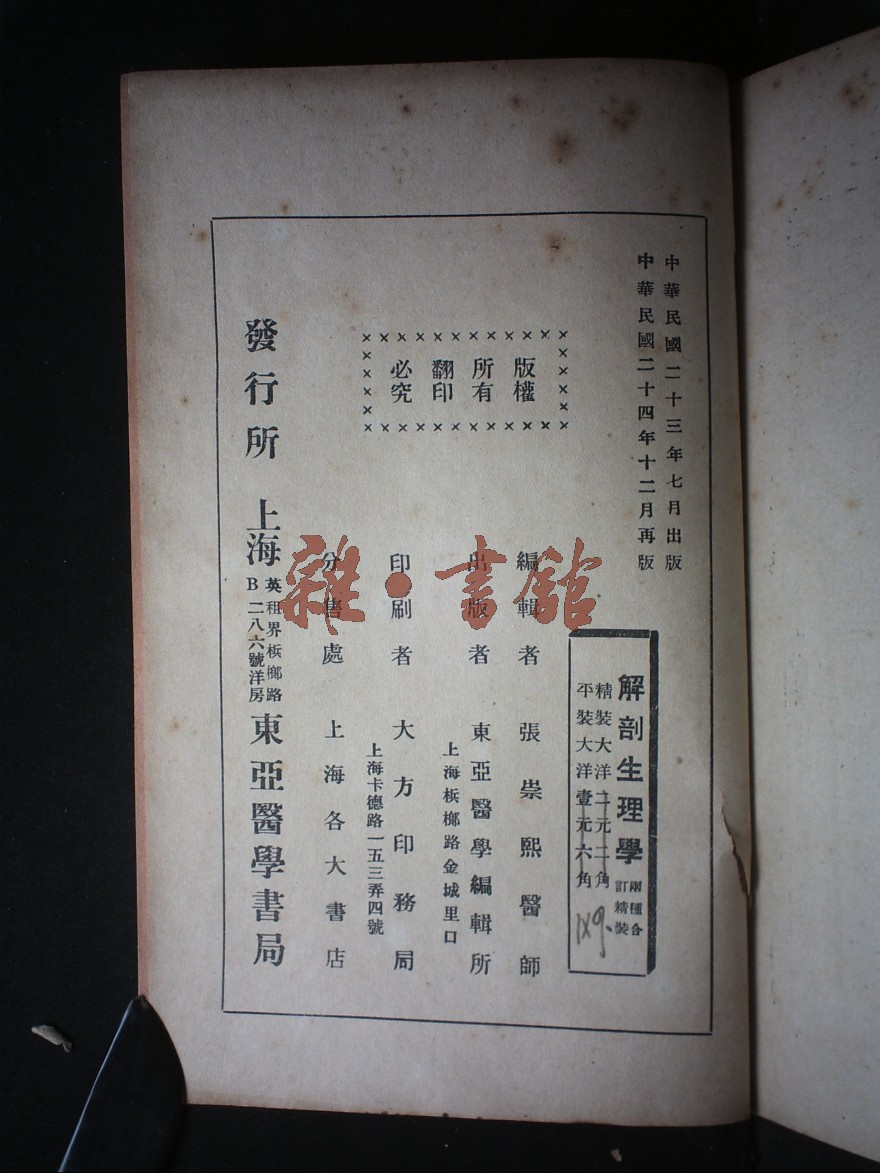 中華民國二十三年七月出版
中華民國二十四年十二月再版
解剖生理學
兩種合
訂精裝
精裝大洋二元二角
平裝大洋壹元六角
版權
所有
翻印
必究
編輯者 張崇熙醫師
出版者 東亞醫學編輯所
上海梹榔路金城里口
印刷者 大方印務局
上海卡德路一五三弄四號
分售處 上海各大書店
發行所 上海 英租界梹榔路
B二八六號洋房 東亞醫學書局
雜·書館